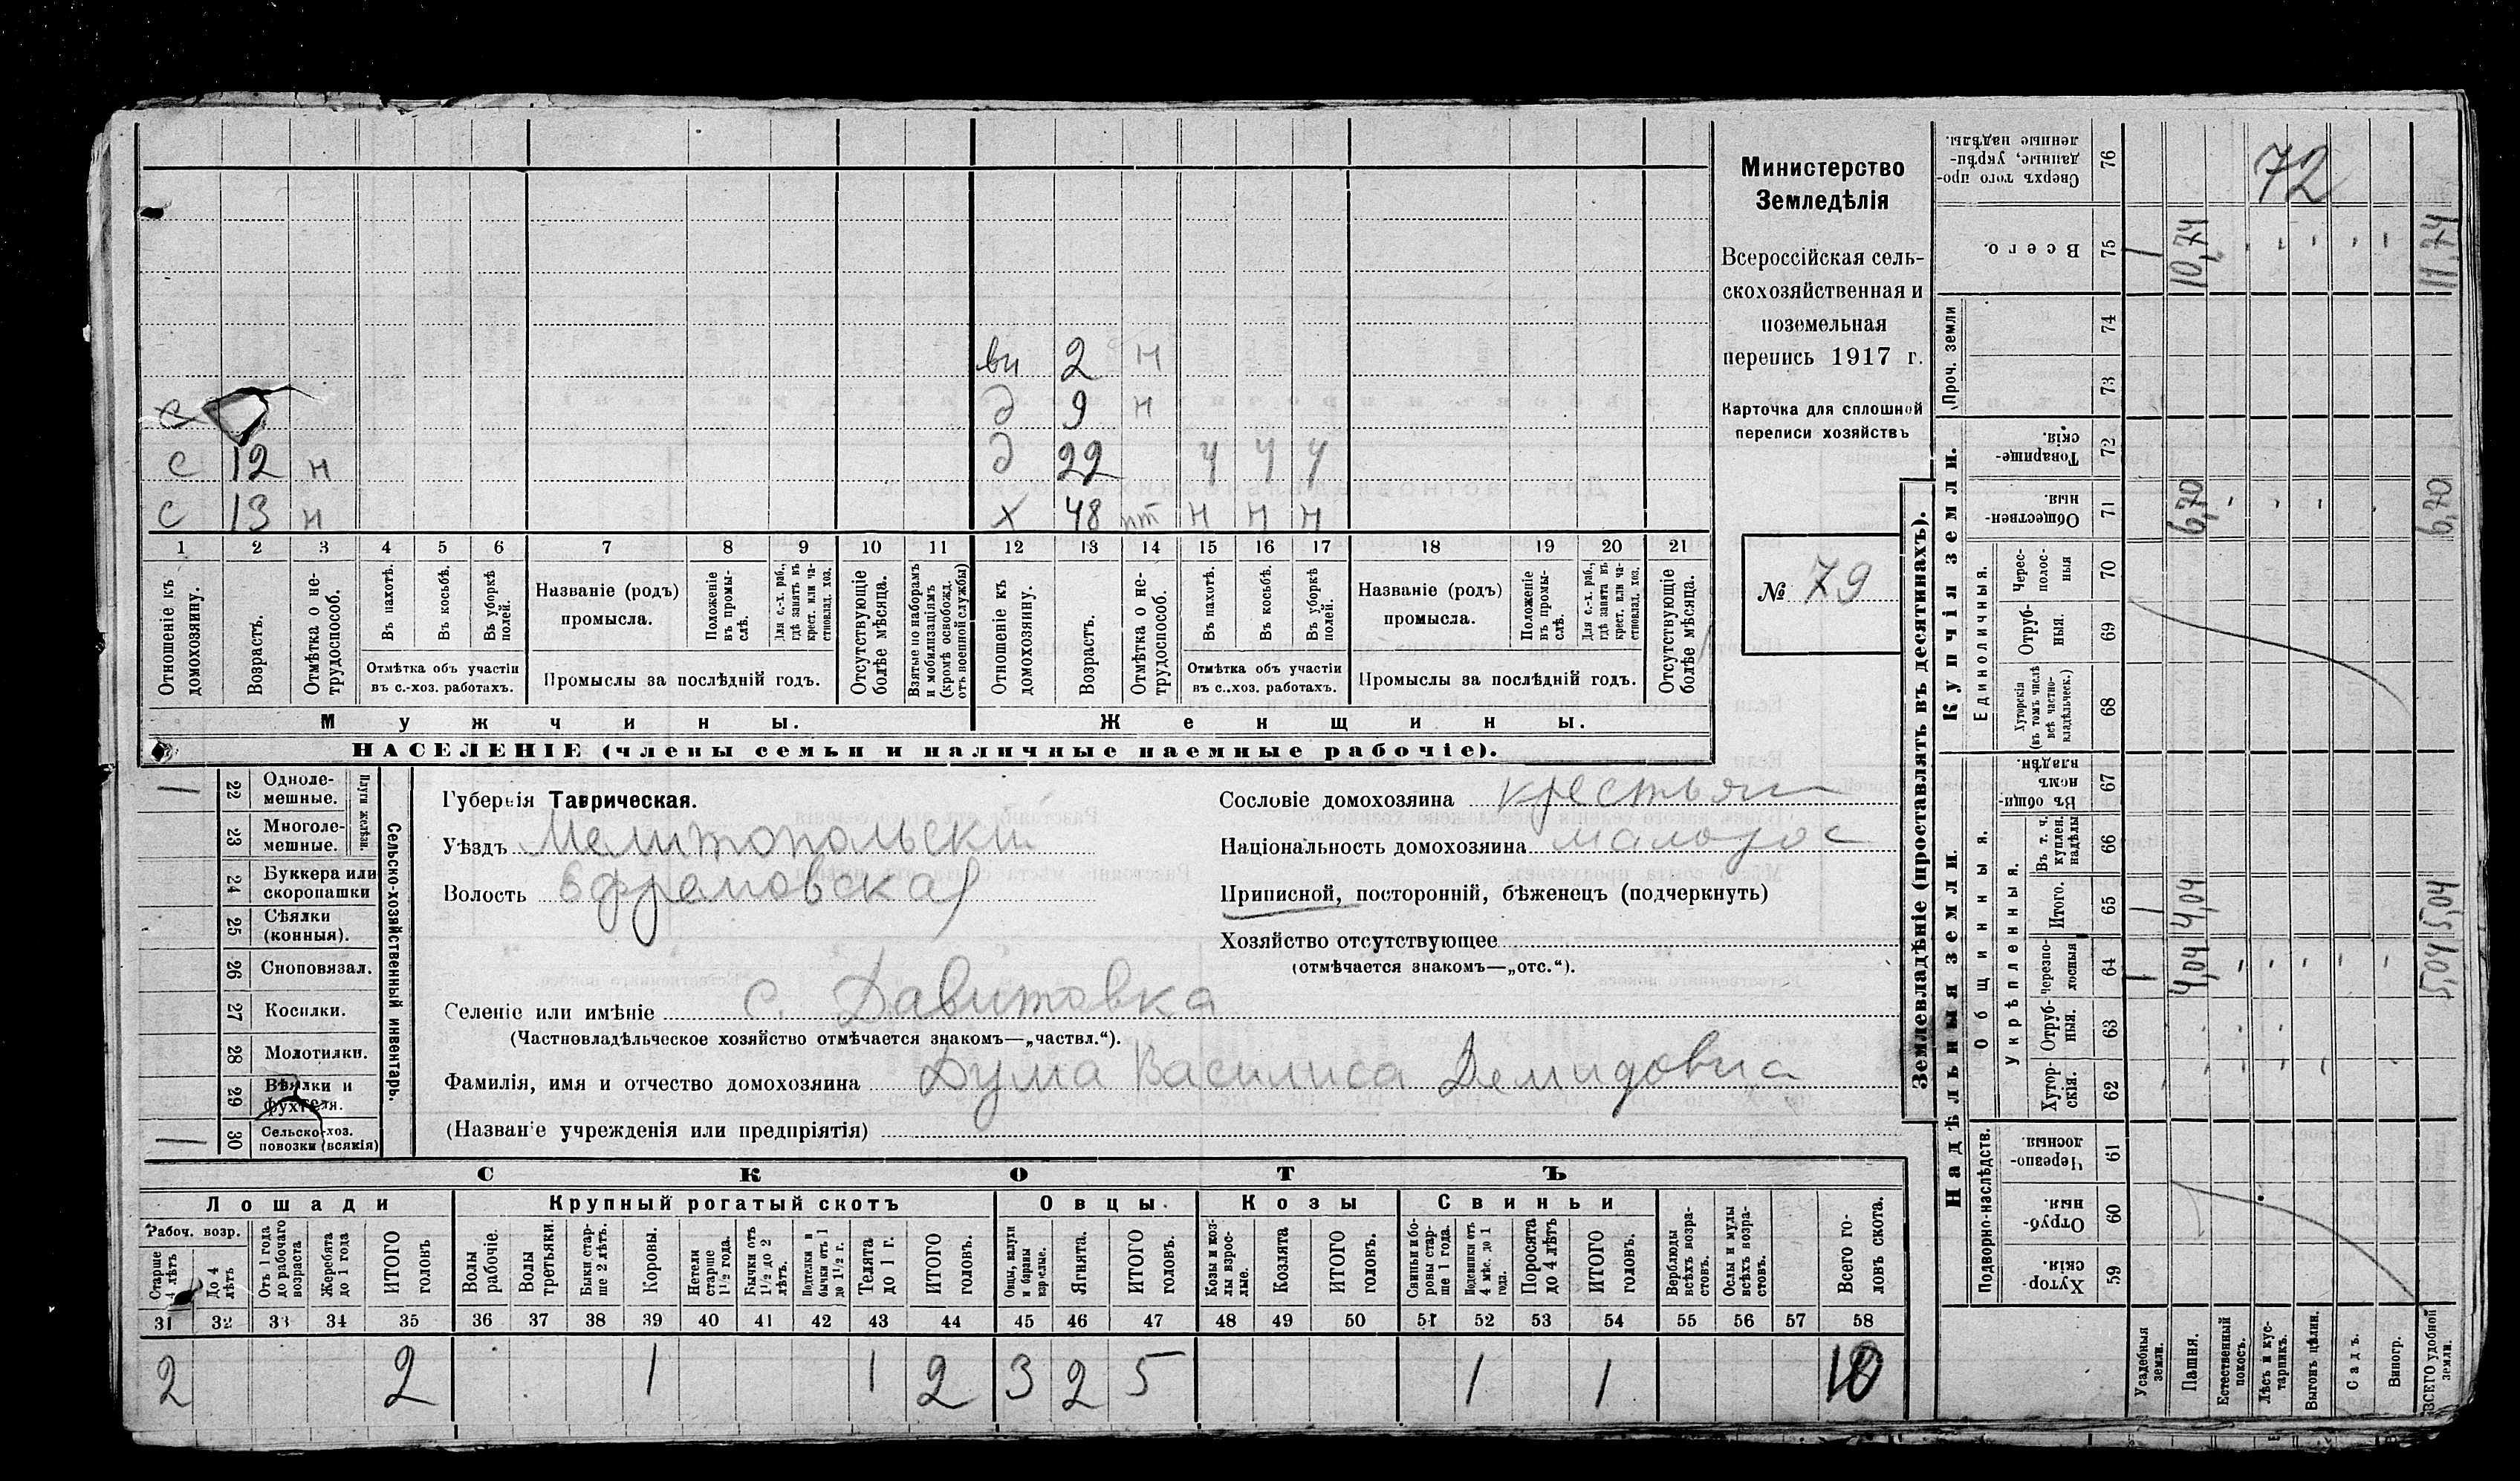 вн 2 н
с д 9 н
с 12 н д 22 ч ч ч
с 13 н х 48 пт н н н
1 2 3 4 5 6 7 8 9 10 11 12 13 14 15 16 17 18 19 20 21
Отношеніе къ домохозяину.
Возрастъ.
Отмѣтка о не-
трудоспособ.
Въ пахотѣ.
Въ косьбѣ.
Въ уборкѣ
полей.
Отмѣтка объ участіи
въ с.-хоз. работахъ.
Названіе (родъ)
промысла.
Положеніе
въ промы-
слѣ.
Для с.-х. раб.,
гдѣ занятъ въ
крест. или ча-
стновлад. хоз.
Промыслы за послѣдній годъ.
Отсутствующіе
болѣе мѣсяца.
Взятые по наборамъ
и мобилизаціямъ
(кромѣ освобожд.
отъ военной службы)
Отношеніе къ
домохозяину.
Возрастъ.
Отмѣтка о не-
трудоспособ.
Въ пахотѣ.
Въ косьбѣ.
Въ уборкѣ
полей.
Отмѣтка объ участіи
въ с.-хоз. работахъ.
Названіе (родъ)
промысла.
Положеніе
въ промы-
слѣ.
Для с.-х. раб.,
гдѣ занята въ
крест. или ча-
стновлад. хоз.
Промыслы за послѣдній годъ.
Отсутствующіе
болѣе мѣсяца.
Мужчины. Женщины.
НАСЕЛЕНІЕ (члены семьи и наличные наемные рабочіе).
Министерство
Земледѣлія
Всероссійская сель-
скохозяйственная и
поземельная
перепись 1917 г.
Карточка для сплошной
переписи хозяйствъ
№ 79
22 Одноле-
мешные.
23 Многоле-
мешные.
Плуги желѣзн.
24 Буккера или
скоропашки
25 Сѣялки
(конныя).
26 Сноповязал.
27 Косилки.
28 Молотилки.
29 Вѣялки и
фухтеля.
30 Сельско-хоз.
повозки (всякія)
Сельско-хозяйственный инвентарь.
Губернія Таврическая.
Уѣздъ Мелитопольский
Волость Ефремовская
Селеніе или имѣніе с. Давитовка
(Частновладѣльческое хозяйство отмѣчается знакомъ—„частвл.“).
Фамилія, имя и отчество домохозяина Дума Василиса Демидовна
(Названіе учрежденія или предпріятія)
Сословіе домохозяина крестьян
Національность домохозяина малорос
Приписной, посторонній, бѣженецъ (подчеркнуть)
Хозяйство отсутствующее
(отмѣчается знакомъ—„отс.“).
СКОТЪ
Лошади Крупный рогатый скотъ Овцы. Козы Свиньи
Рабоч. возр.
Старше
4 лѣтъ
До 4
лѣтъ
Отъ 1 года
до рабочаго
возраста
Жеребята
до 1 года
ИТОГО
головъ
Волы
рабочіе.
Волы
третьяки.
Быки стар-
ше 2 лѣтъ.
Коровы.
Нетели
старше
1½ года.
Бычки отъ
1½ до 2
лѣтъ.
Подтелки и
бычки отъ 1
до 1½ г.
Телята
до 1 г.
ИТОГО
головъ.
Овцы, валухи
и бараны
взрослые.
Ягнята.
ИТОГО
головъ.
Козы и коз-
лы взрос-
лые.
Козлята
ИТОГО
головъ.
Свиньи и бо-
ровы стар-
ше 1 года.
Подсвинки отъ
4 мѣс. до 1
года.
Поросята
до 4 лѣтъ
ИТОГО
головъ.
Верблюды
всѣхъ возра-
стовъ.
Ослы и мулы
всѣхъ возра-
стовъ.
Всего го-
ловъ скота.
31 32 33 34 35 36 37 38 39 40 41 42 43 44 45 46 47 48 49 50 51 52 53 54 55 56 57 58
2 2 1 1 2 3 2 5 1 1 10
Землевладѣніе (проставлять въ десятинахъ).
Надѣльныя земли. Купчія земли. Проч. земли
Подворно-наслѣдств.
Общинныя.
Укрѣпленныя.
Единоличныя.
59 Хутор-
скія.
60 Отруб-
ныя.
61 Черезпо-
лосныя.
62 Хутор-
скія.
63 Отруб-
ныя.
64 Черезпо-
лосныя 4,04 5,04
65 Итого. 4,04 5,04
66 Въ т. ч.
куплен.
надѣлы
67 Въ общи-
номъ
владѣн.
68 Хуторскія
(въ томъ числѣ
всѣ частно-
владѣльческ.)
69 Отруб-
ныя.
70 Черес-
полос-
ныя
71 Обществен-
ныя. 6,70 6,70
72 Товарище-
скія.
73
74
75 Всего. 10,74 11,74
76 Сверхъ того про-
данные, укрѣп-
ленные надѣлы.
72
Усадебныя
земли.
Пашня.
Естественный
покосъ.
Лѣсъ и кус-
тарникъ.
Выгонъ цѣлин.
Садъ.
Виногр.
ВСЕГО удобной
земли.